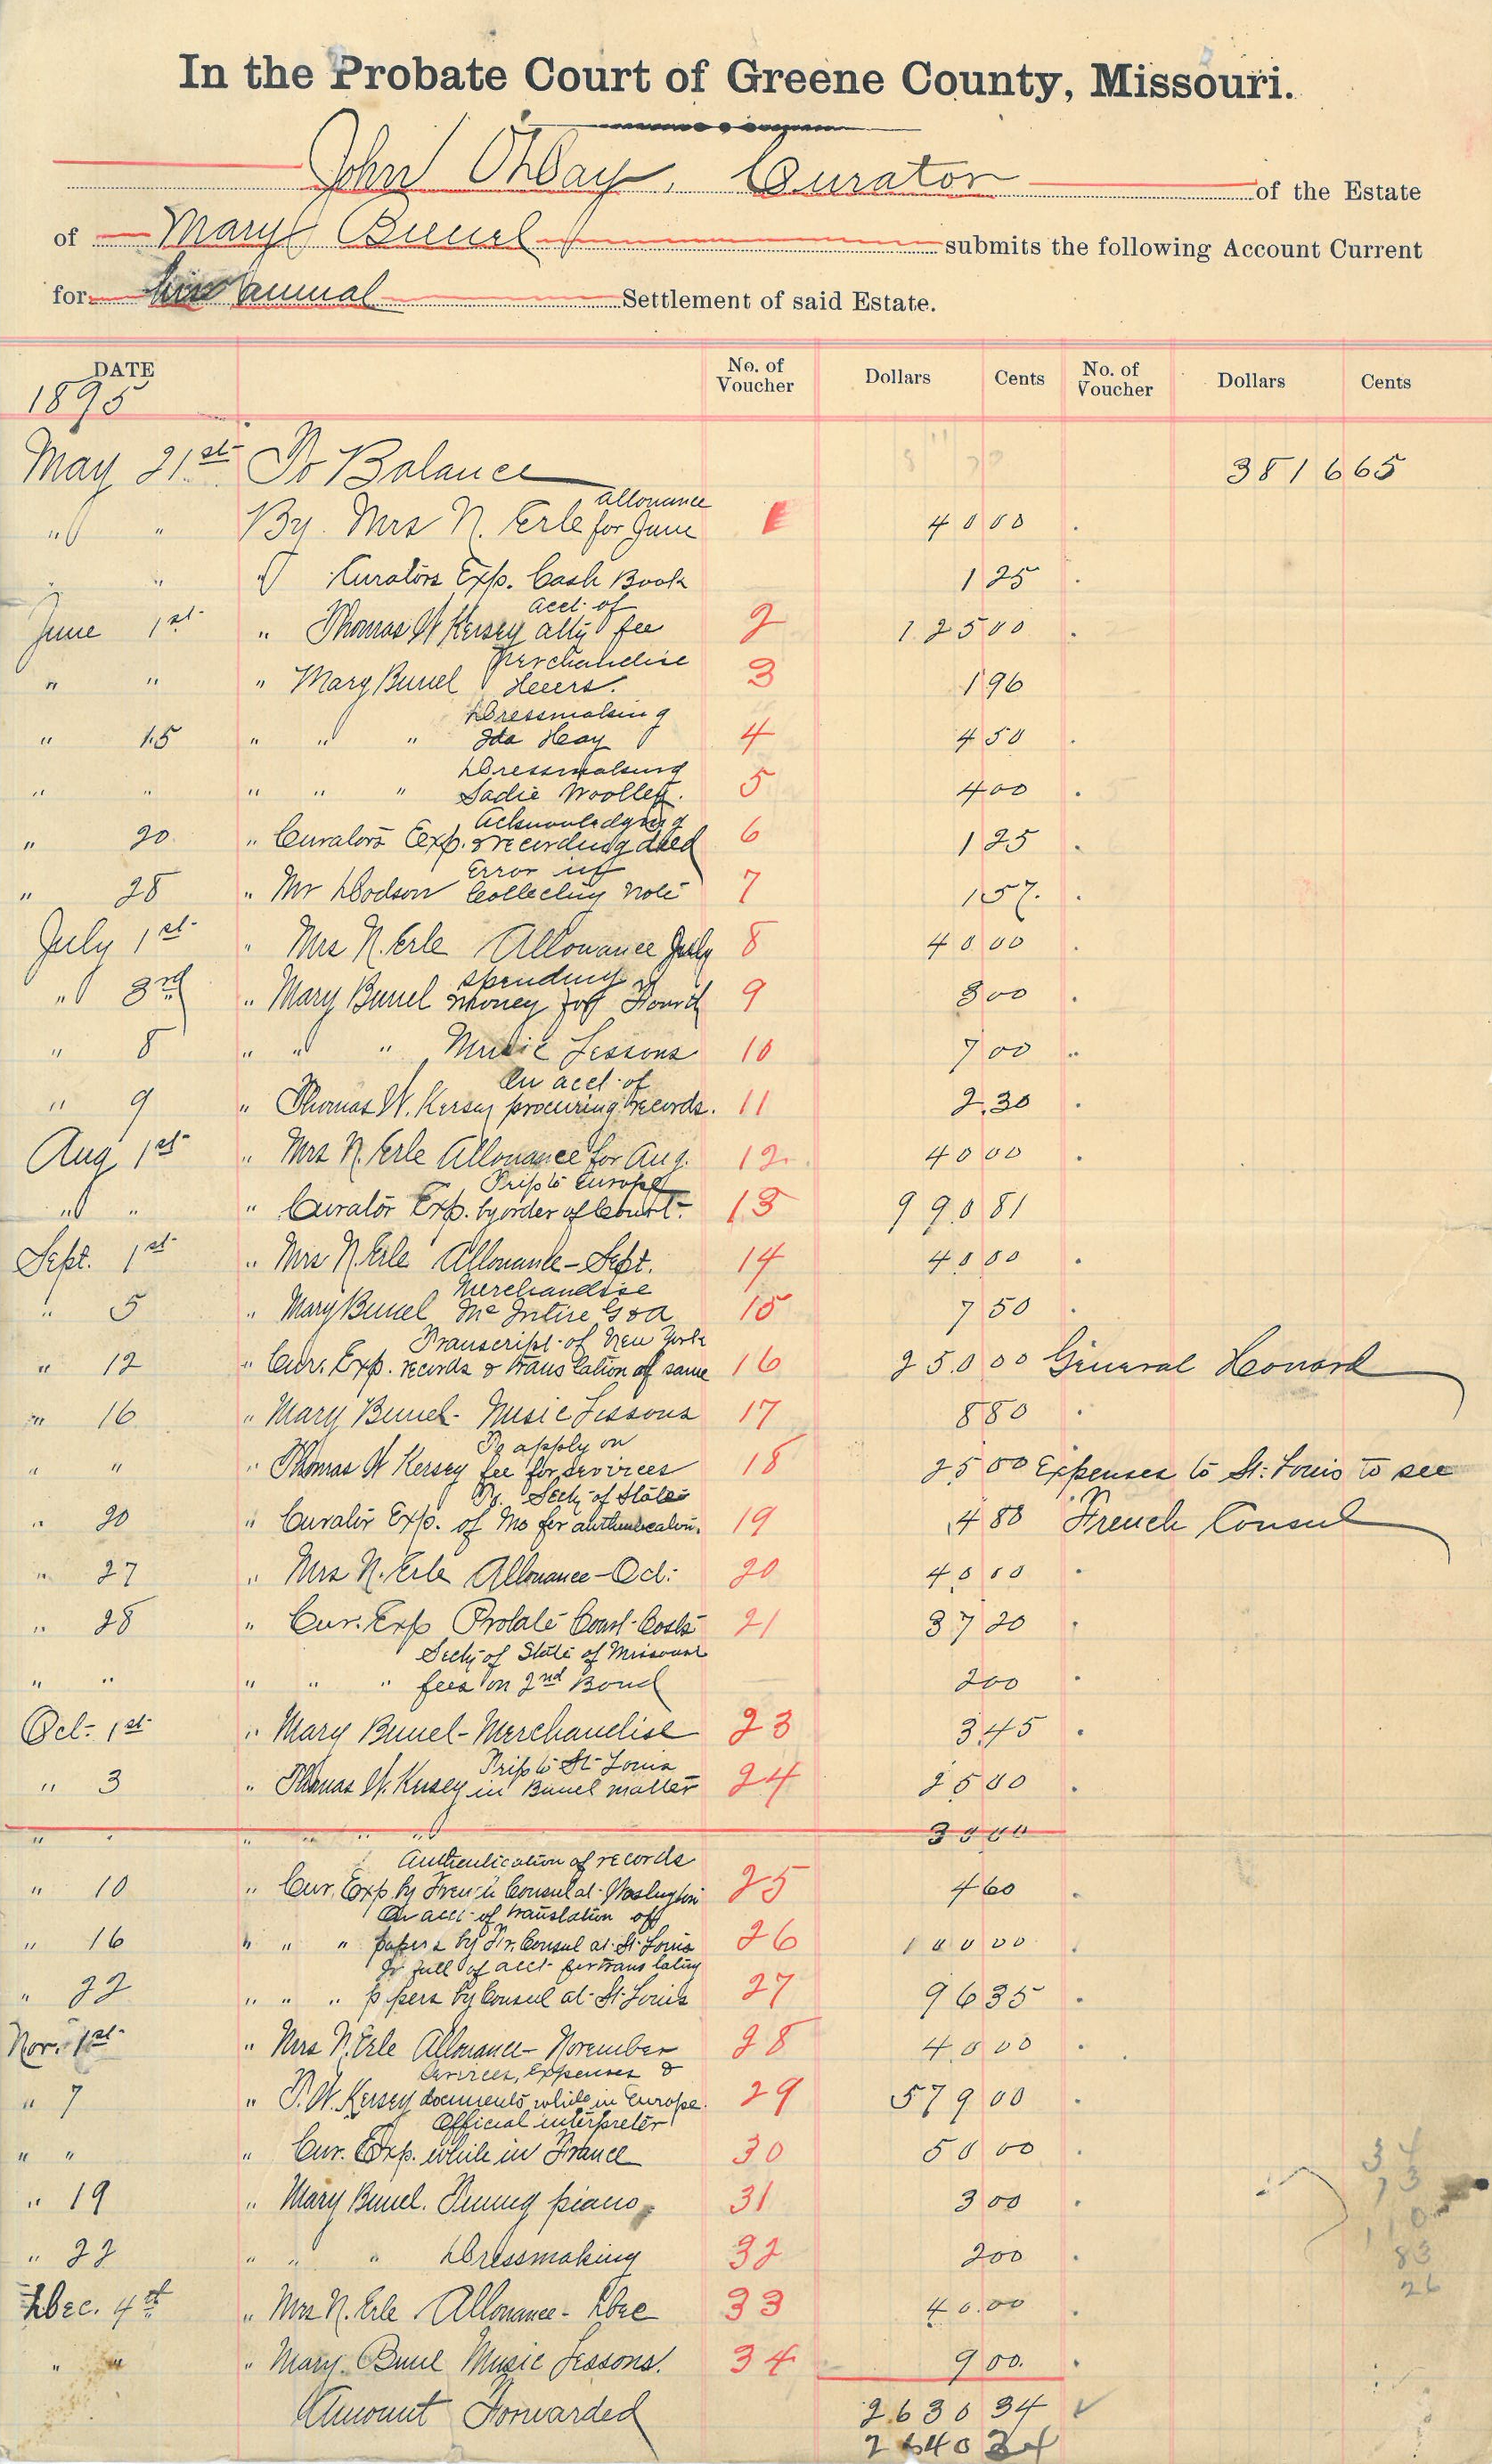 In the Probate Court of Greene County, Missouri.
John O'Day, Curator of the Estate
of Mary Bunel submits the following Account Current
for annual Settlement of said Estate.
DATE No. of Voucher Dollars Cents No. of Voucher Dollars Cents
1895
May 21st To Balance 3816 65
" " By Mrs N. Erle allowance for June 1 40 00
" " " Curators Exp. Cash Book 1 25
June 1st " Thomas W Kersey acct. of atty fee 2 125 00
" " " Mary Bunel Merchandise Heers. 3 1 96
" 15 " " " Dressmaking Ida Hay 4 4 50
" " " " " Dressmaking Sadie Woolley. 5 4 00
" 20 " Curators Exp. Acknowledging & recording deed 6 1 25
" 28 " Mr Dodson Error in Collecting note 7 1 57.
July 1st " Mrs N. Erle Allowance July 8 40 00
" 3rd " Mary Bunel spending money for Fourth 9 3 00
" 8 " " " Music Lessons 10 7 00
" 9 " Thomas W. Kersey On acct. of procuring records. 11 2.30
Aug 1st " Mrs N. Erle Allowance for Aug. 12 40 00
" " " Curator Exp. Trip to Europe by order of Court 13 990 81
Sept. 1st " Mrs N. Erle Allowance - Sept. 14 40 00
" 5 " Mary Bunel Merchandise Mc Intire 15 7 50
" 12 " Cur. Exp. Transcript of New York records & translation of same 16 250 00 General Conard
" 16 " Mary Bunel - Music Lessons 17 8 80
" " " Thomas W Kersey To apply on fee for services 18 25 00 Expenses to St. Louis to see
" 20 " Curator Exp. To Secty of State of Mo for authentication. 19 4 88 French Consul
" 27 " Mrs N. Erle Allowance - Oct. 20 40 00
" 28 " Cur. Exp Probate Court Costs 21 37 20
" " " " " Secty of State of Missouri fees on 2nd Bond 2 00
Oct. 1st " Mary Bunel - Merchandise 23 3 45
" 3 " Thomas W. Kersey Trip to St Louis in Bunel matter 24 25 00
" " " " " " 30 00
" 10 " Cur. Exp. Authentication of records by French Consul at Washington 25 4 60
" 16 " " " On acct of translation of papers by Fr. Consul at St. Louis 26 100 00
" 22 " " " In full of acct for translating papers by Consul at St. Louis 27 96 35
Nov. 1st " Mrs N. Erle Allowance - November 28 40 00
" 7 " T. W. Kersey Services, Expenses & documents while in Europe. 29 579 00
" " " Cur. Exp. Official interpreter while in France 30 50 00
" 19 " Mary Bunel. Tuning piano, 31 3 00
" 22 " " " Dressmaking 32 2 00
Dec. 4th " Mrs N. Erle Allowance - Dec 33 40.00
" " " Mary Bunel Music Lessons. 34 9 00.
Amount Forwarded 2630 34
2640 34
34
73
110
83
26